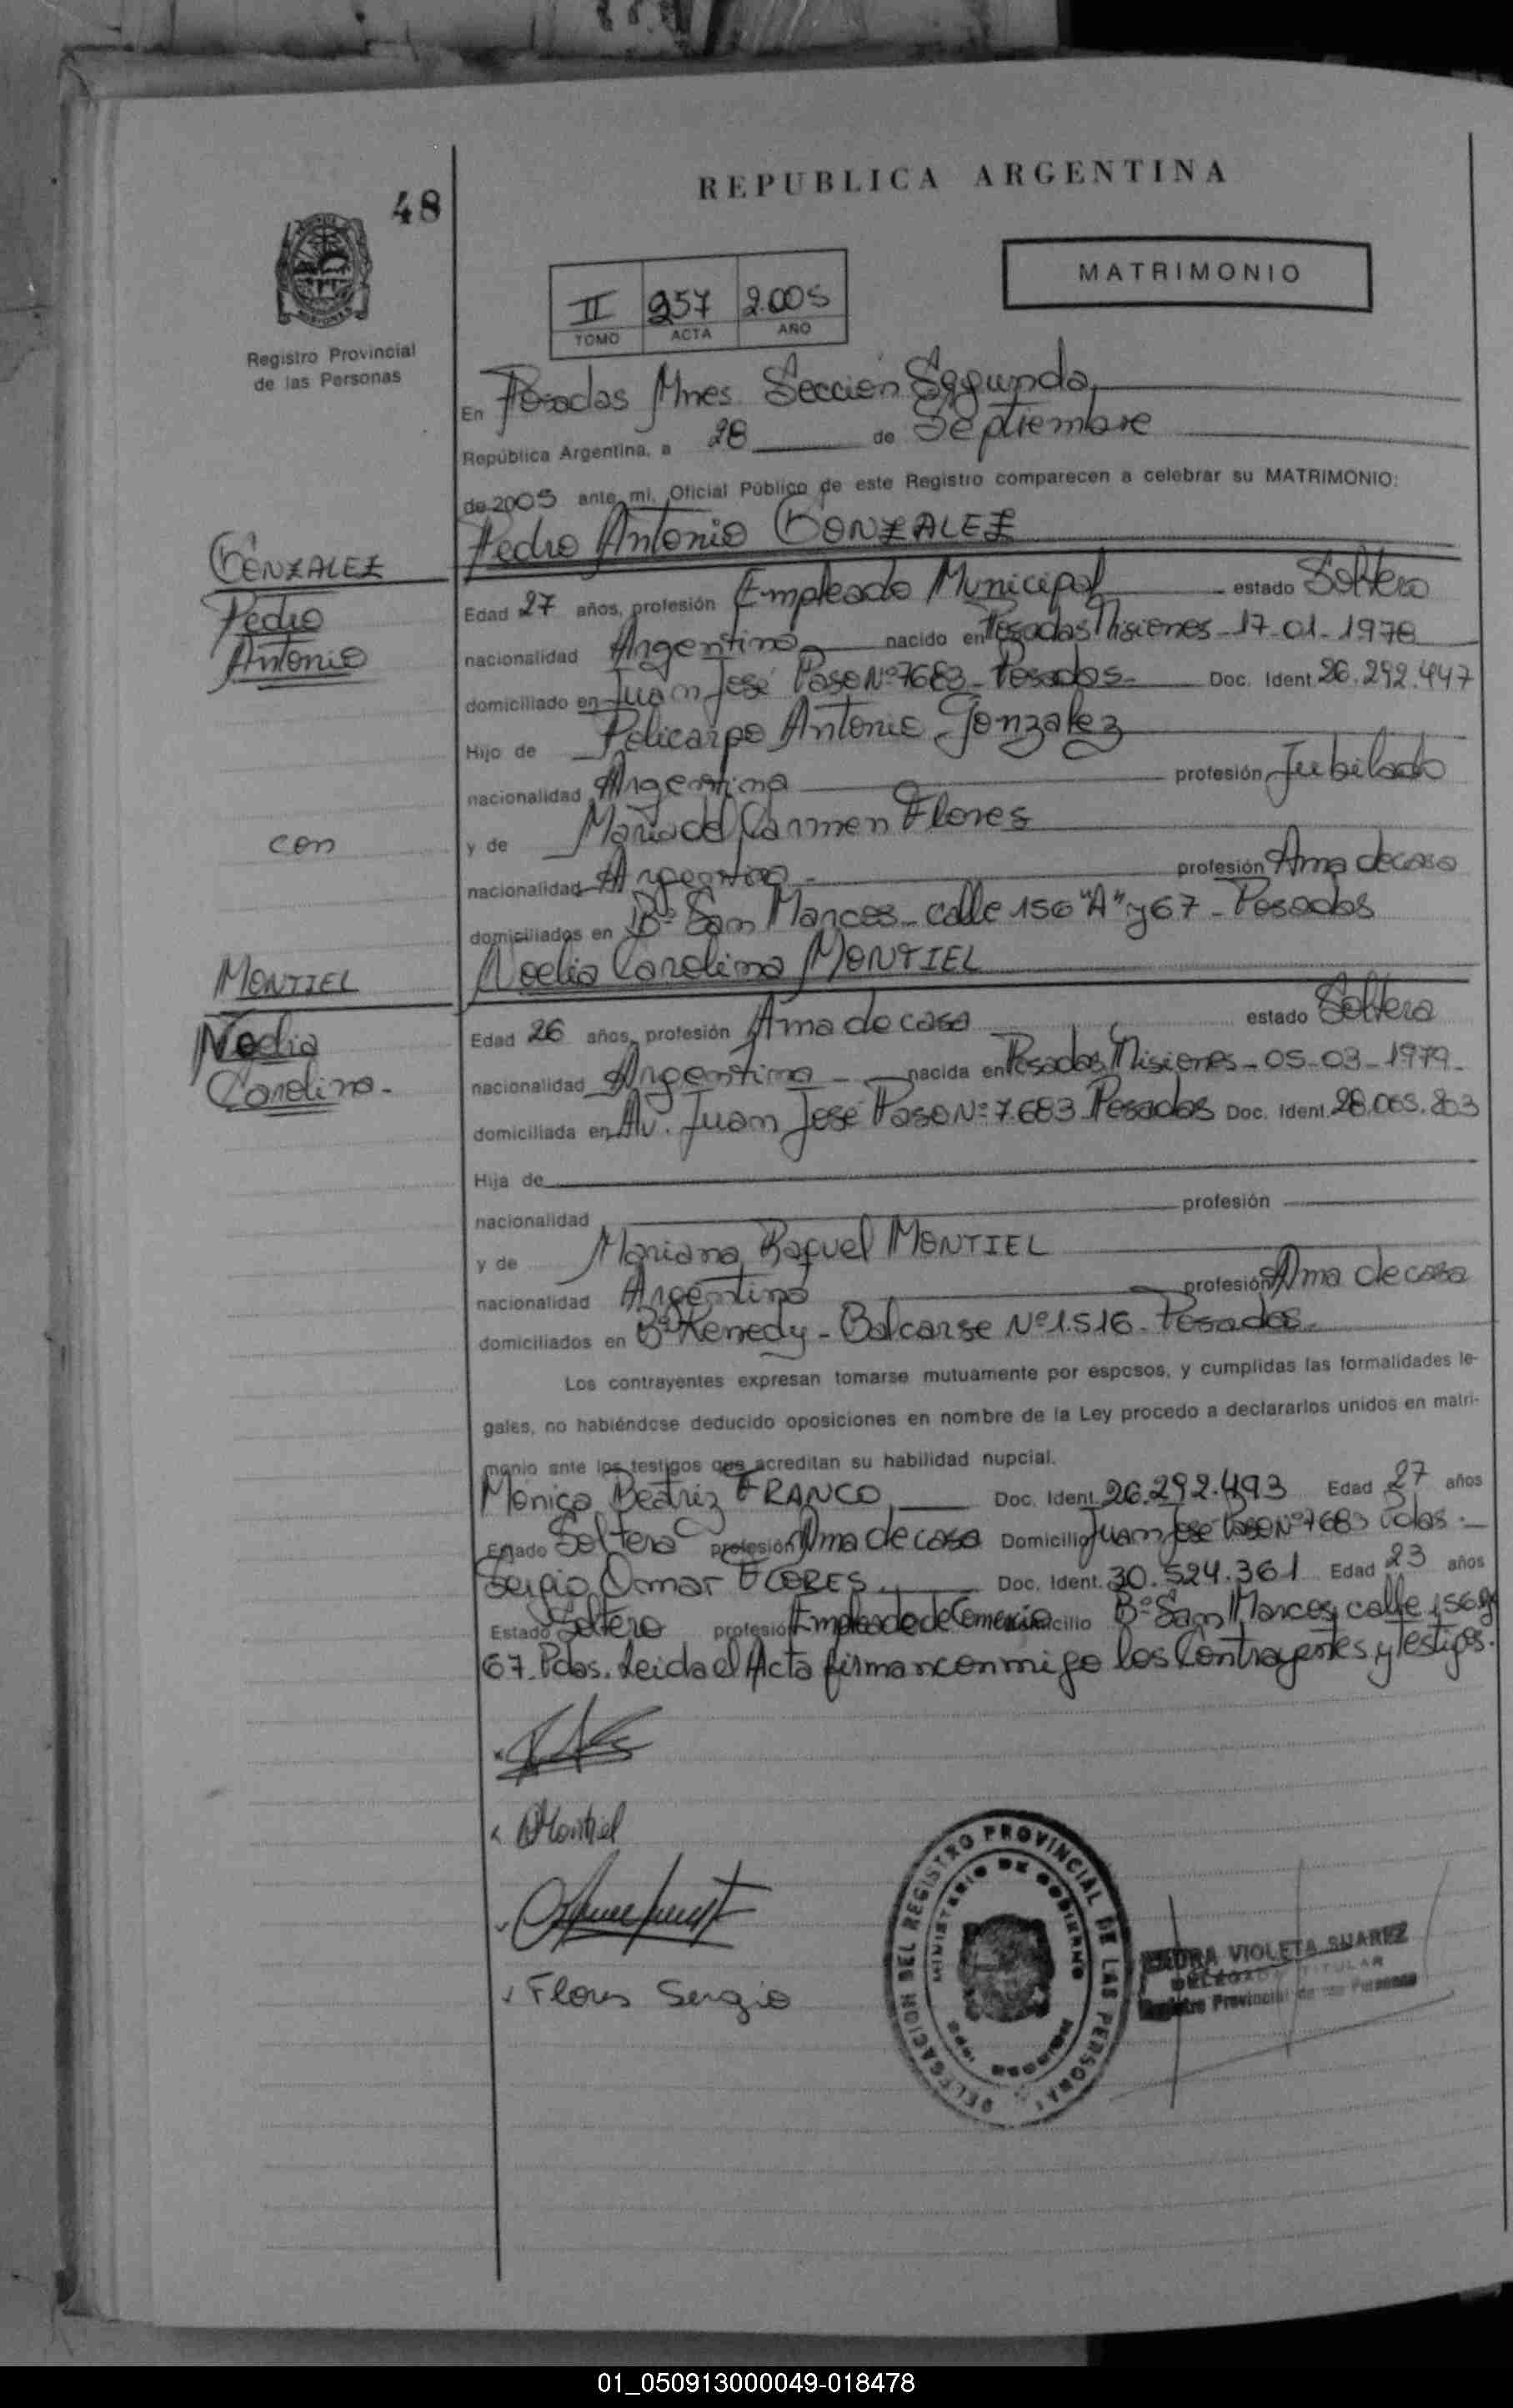 48
REPUBLICA ARGENTINA
MATRIMONIO
II 257 2.005
TOMO ACTA AÑO
Registro Provincial
de las Personas
En Posadas Mnes. Sección Segunda
República Argentina, a 28 de Septiembre
de 2005 ante mi, Oficial Público de este Registro comparecen a celebrar su MATRIMONIO:
Pedro Antonio GONZALEZ
GONZALEZ
Pedro
Antonio
Edad 27 años, profesión Empleado Municipal estado Soltero
nacionalidad Argentino nacido en Posadas Misiones - 17-01-1978
domiciliado en Juan José Paso Nº 7683 - Posadas - Doc. Ident. 26.292.447
Hijo de Policarpo Antonio Gonzalez
nacionalidad Argentina profesión Jubilado
y de Maria del Carmen Flores
con
nacionalidad Argentina - profesión Ama de casa
domiciliados en Bº San Marcos - calle 156 "A" y 67 - Posadas
Noelia Carolina MONTIEL
MONTIEL
Noelia
Carolina -
Edad 26 años, profesión Ama de casa estado Soltera
nacionalidad Argentina - nacida en Posadas, Misiones - 05-03-1979 -
domiciliada en Av. Juan José Paso Nº 7.683 Posadas Doc. Ident. 28.065.803
Hija de
nacionalidad profesión
y de Mariana Raquel MONTIEL
nacionalidad Argentina profesión Ama de casa
domiciliados en Bº Kenedy - Balcarse Nº 1.516 - Posadas -
Los contrayentes expresan tomarse mutuamente por esposos, y cumplidas las formalidades le-
gales, no habiéndose deducido oposiciones en nombre de la Ley procedo a declararlos unidos en matri-
monio ante los testigos que acreditan su habilidad nupcial.
Monica Beatriz FRANCO Doc. Ident. 26.292.493 Edad 27 años
Estado Soltera profesión Ama de casa Domicilio Juan José Paso Nº 7683 Pdas. -
Sergio Omar FLORES Doc. Ident. 30.524.361 Edad 23 años
Estado Soltero profesión Empleado de Comercio Domicilio Bº San Marcos calle 156 y
67 - Pdas. Leida el Acta firman conmigo los Contrayentes y Testigos.
Montiel
Flores Sergio
DELEGACION DEL REGISTRO PROVINCIAL DE LAS PERSONAS
MINISTERIO DE GOBIERNO
VIOLETA SUAREZ
DELEGADA TITULAR
Registro Provincial de las Personas
01_050913000049-018478